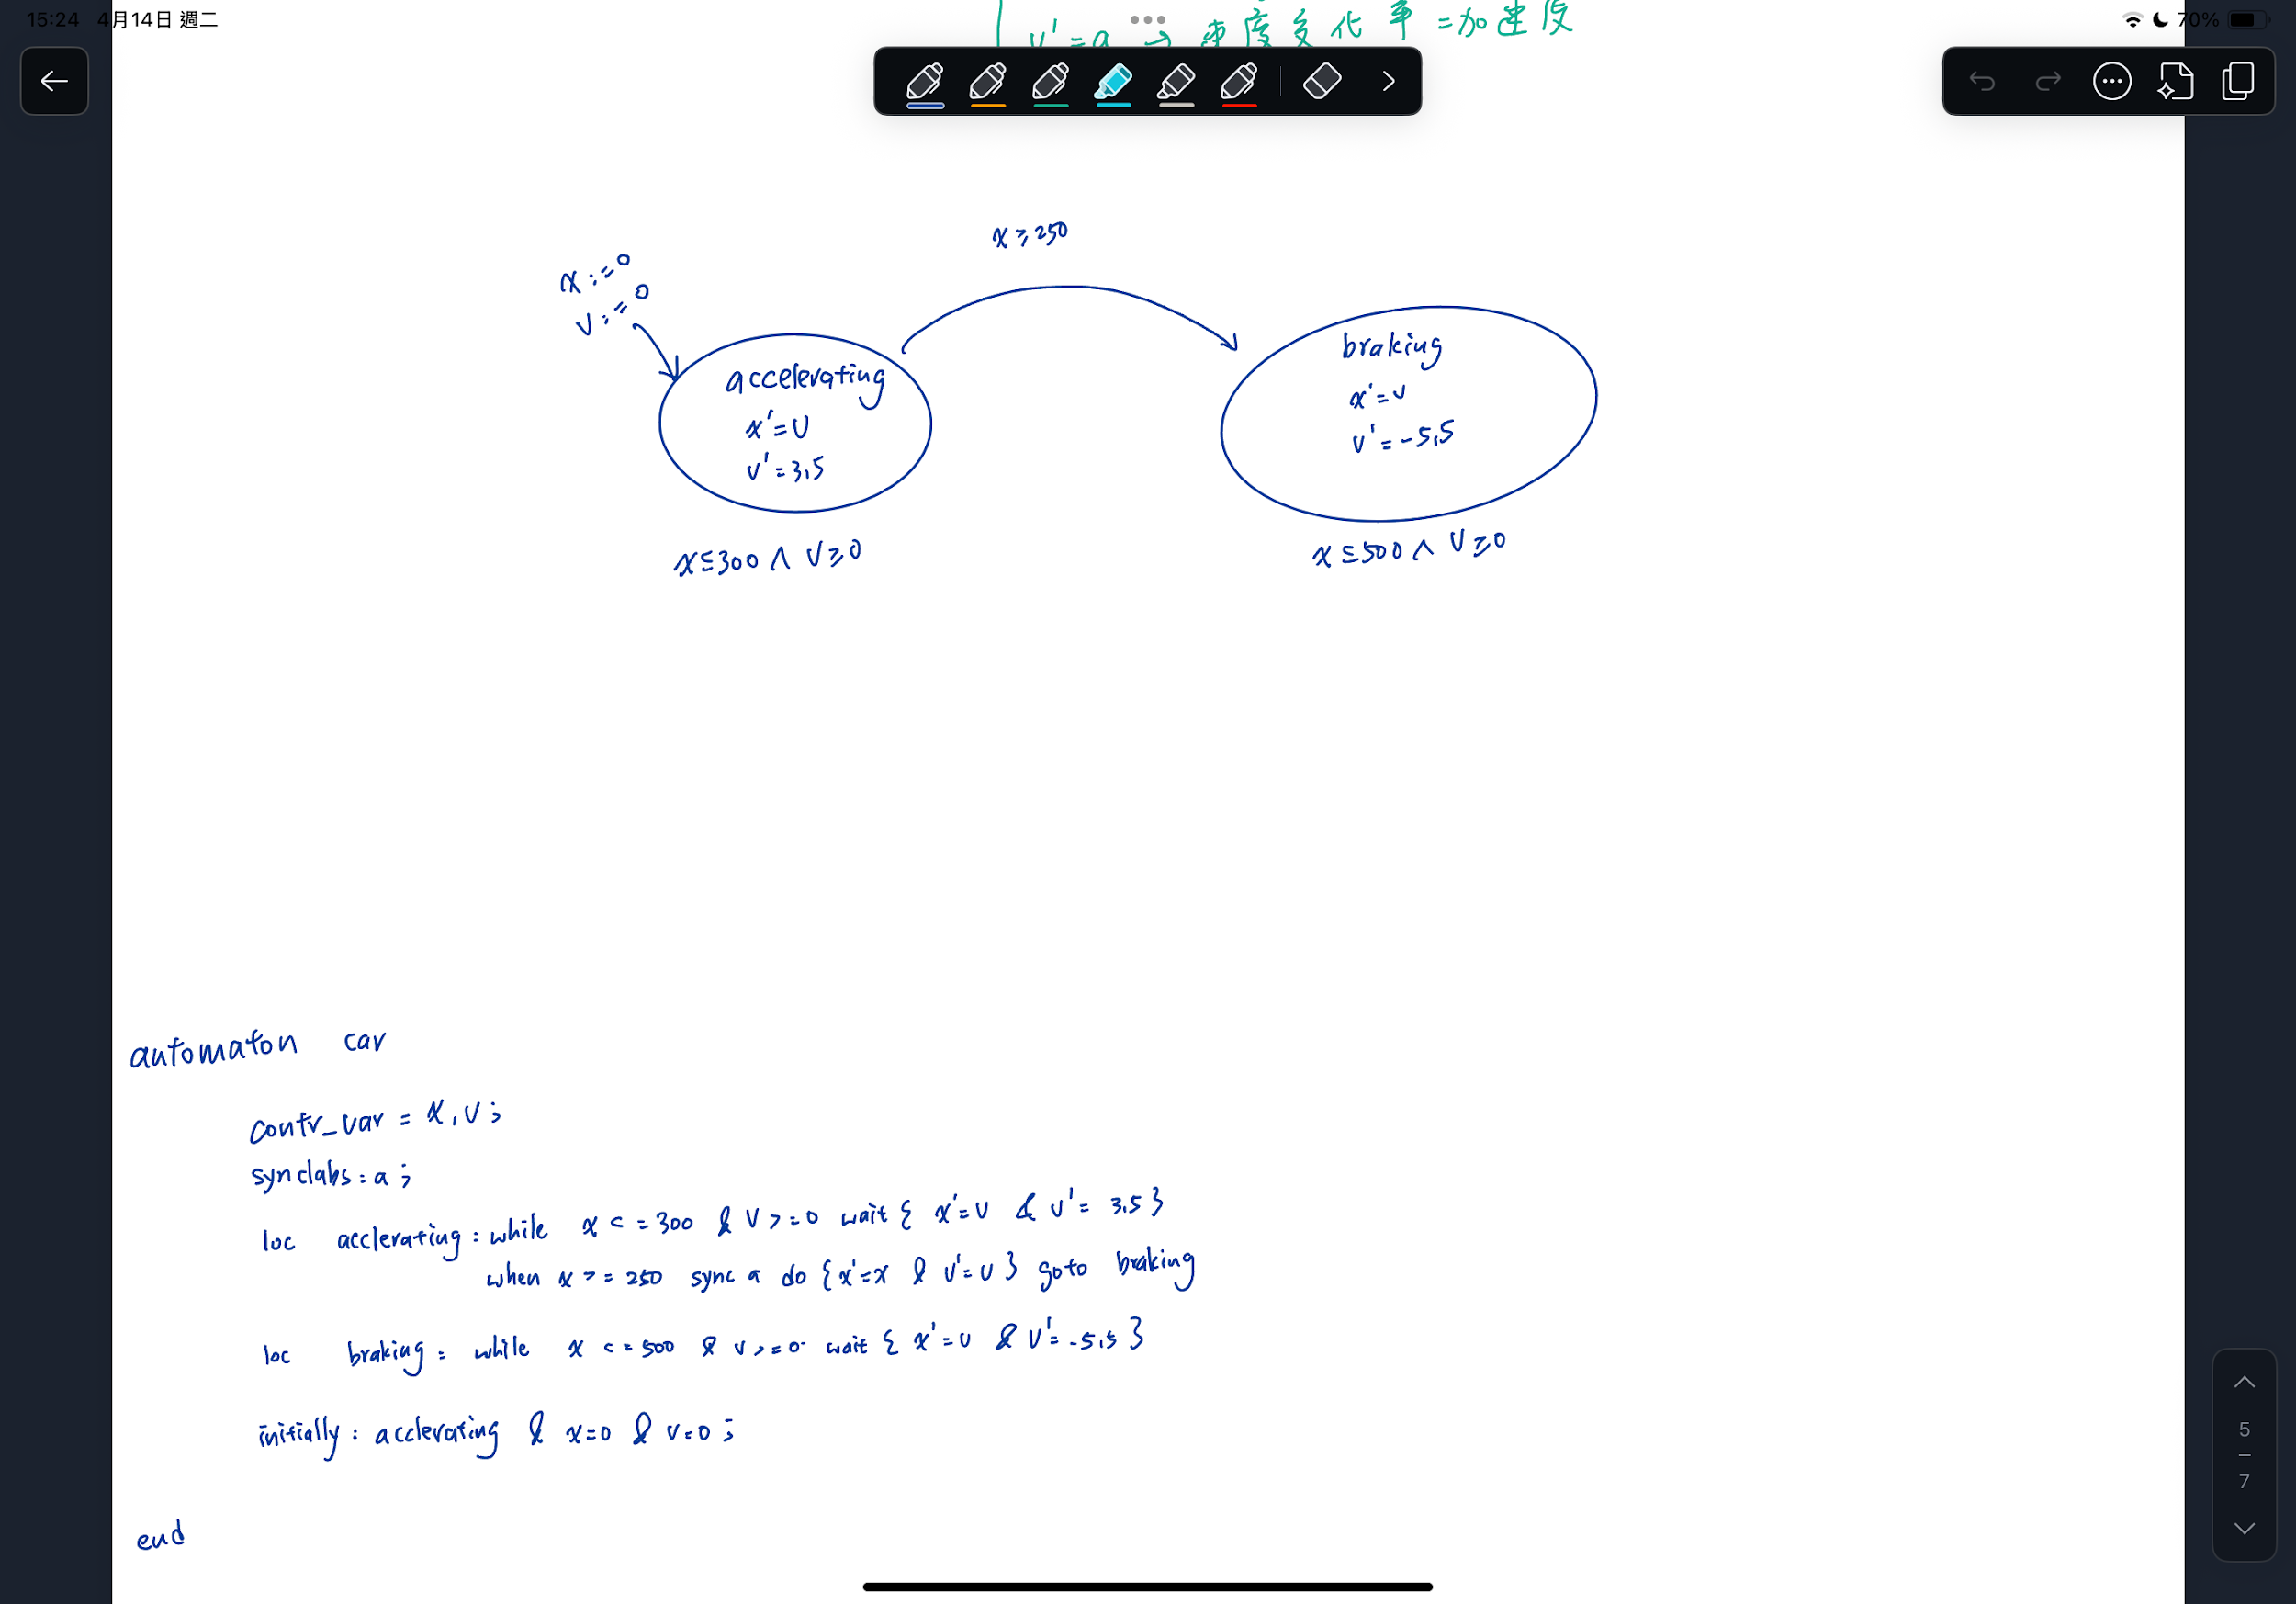 15:24 4月14日 週二
70%
v'=a → 速度变化率=加速度
x≥250
x:=0
v:=0
accelerating
x'=v
v'=3,5
x≤300 ∧ v≥0
braking
x'=v
v'=-5,5
x≤500 ∧ v≥0
automaton car
contr_var = x,v;
synclabs:a;
loc acclerating: while x<=300 & v>=0 wait{ x'=v & v'= 3,5}
when x>=250 sync a do {x'=x & v'=v} goto braking
loc braking: while x<=500 & v>=0 wait{ x'=v & v'=-5,5}
initially: acclerating & x=0 & v=0;
end
5
7